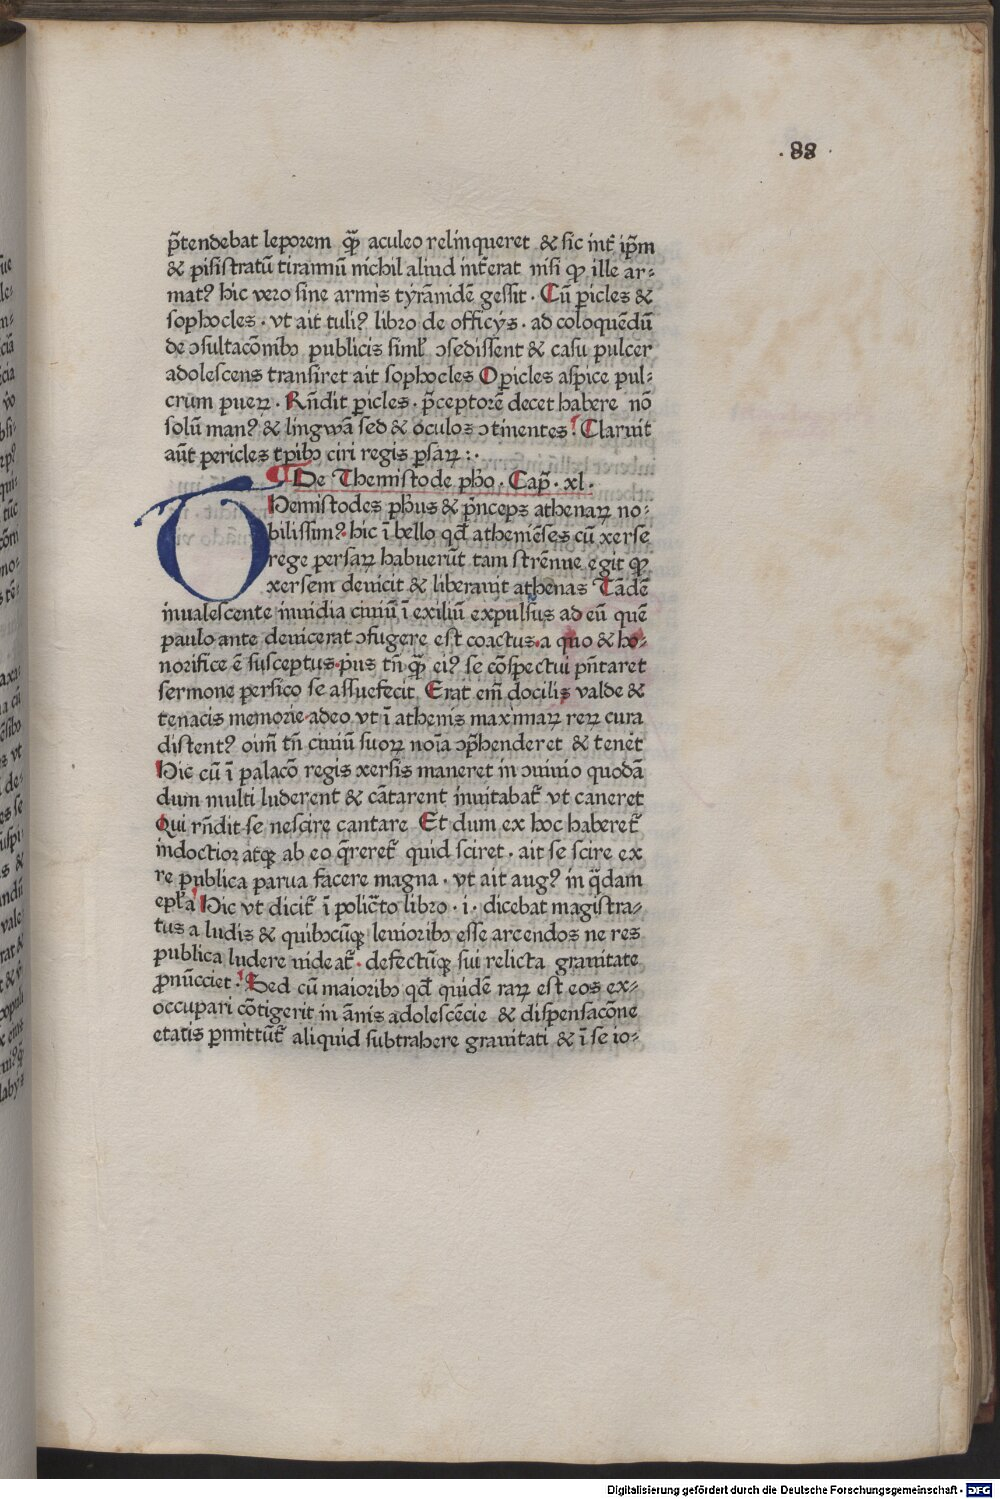 . 88 .
p̃tendebat leporem qꝫ̃ aculeo relinqueret & sic int̃ ip̃m
& pisistratũ tirannũ nichil aliud int̃erat nisi ꝙ ille ar⸗
mat? hic vero sine armis tyrãnidẽ gessit . Cũ ꝑicles &
sophocles . vt ait tuli? libro de officijs . ad coloquẽdũ
de ↄsultacõnibꝫ publicis siml̃ ↄsedissent & casu pulcer
adolescens transiret ait sophocles O ꝑicles aspice pul⸗
crum pueꝝ . Rñdit ꝑicles . p̃ceptorẽ decet habere nõ
solũ man? & lingwã sed & oculos ↄtinentes . Claruit
aũt pericles tꝑibꝫ ciri regis ꝑsaꝝ : .
¶ De Themistode pħo . Cap̃ . xl .
Themistodes pħus & p̃nceps athenaꝝ no⸗
bilissim? . hic ĩ bello qd̃ atheniẽses cũ xerse
rege persaꝝ habuerũt tam strẽnue egit ꝙ
xersem deuicit & liberauit athenas Tãdẽ
inualescente inuidia ciuiũ ĩ exiliũ expulsus ad eũ quẽ
paulo ante deuicerat ↄfugere est coactus . a quo & ho⸗
norifice ẽ susceptus . p̃us tñ qꝫ̃ ei? se cõspectui p̃ntaret
sermone persico se assuefecit Erat em̃ docilis valde &
tenacis memorie . adeo vt ĩ athenis maximaꝝ reꝝ cura
distent? oim̃ tñ ciuiũ suoꝝ noĩa ↄp̃henderet & tenet̃
Hic cũ ĩ palacõ regis xersis maneret in ↄuiuio quodã
dum multi luderent & cãtarent inuitabat̃ vt caneret
Qui rñdit se nescire cantare Et dum ex hoc haberet̃
indoctior atqꝫ ab eo q̃reret̃ quid sciret . ait se scire ex
re publica parua facere magna . vt ait aug? in q̃dam
epl̃a Hic vt dicit̃ ĩ polic̃to libro . i . dicebat magistra⸗
tus a ludis & quibꝫcũqꝫ leuioribꝫ esse arcendos ne res
publica ludere uideat̃ . defectũqꝫ sui relicta grauitate
ꝓnũcciet . Sed cũ maioribꝫ qd̃ quidẽ raꝝ est eos ex⸗
occupari cõtigerit in ãnis adolescẽcie & dispensacõne
etatis ꝑmittũt̃ aliquid subtrahere grauitati & ĩ se io⸗
Digitalisierung gefördert durch die Deutsche Forschungsgemeinschaft - DFG